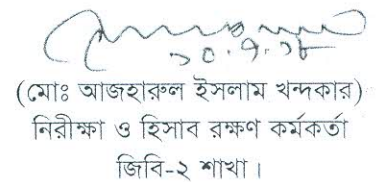 ১০.৭.১৮
(মোঃ আজহারুল ইসলাম খন্দকার)
নিরীক্ষা ও হিসাব রক্ষণ কর্মকর্তা
জিবি-২ শাখা।